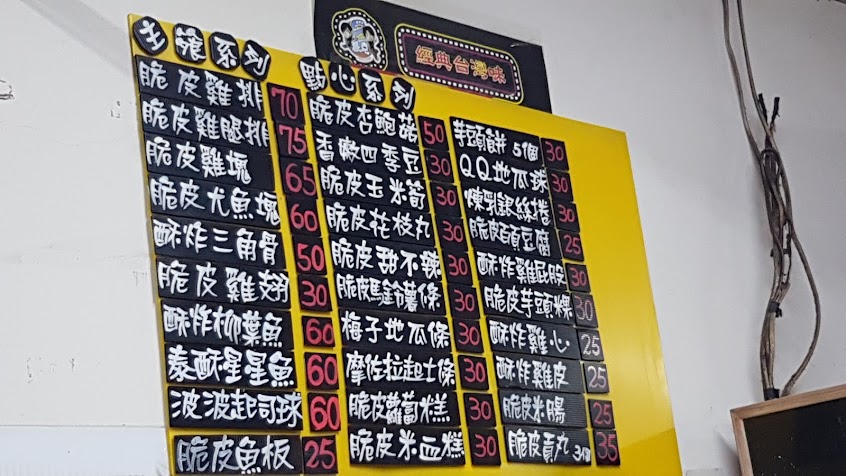 經典台灣味
主餐系列
脆皮雞排 70
脆皮雞腿排 75
脆皮雞塊 65
脆皮尤魚塊 60
酥炸三角骨 50
脆皮雞翅 30
酥炸柳葉魚 60
麥酥星星魚 60
波波起司球 60
脆皮魚板 25
點心系列
脆皮杏鮑菇 50
香嫩四季豆 30
脆皮玉米筍 30
脆皮花枝丸 30
脆皮甜不辣 30
脆皮馬鈴薯條 30
梅子地瓜條 30
摩佐拉起士條 30
脆皮蘿蔔糕 30
脆皮米血糕 30
芋頭餅 5個 30
QQ地瓜球 30
煉乳銀絲捲 30
脆皮百頁豆腐 25
酥炸雞屁股 30
脆皮芋頭粿 30
酥炸雞心 25
酥炸雞皮 25
脆皮米腸 25
脆皮貢丸 3個 35